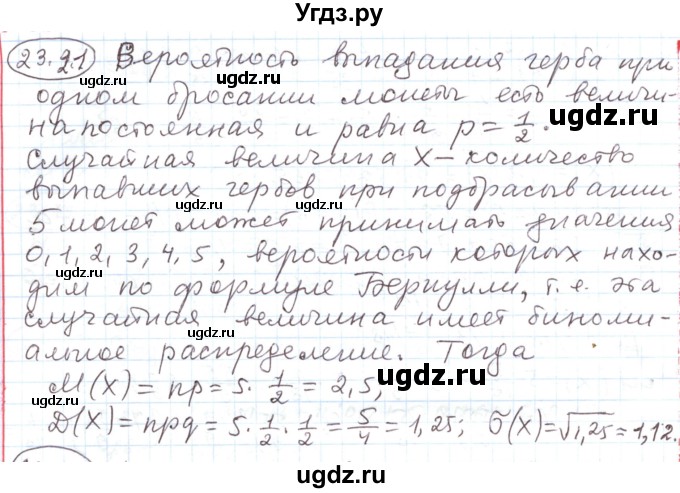 Угдз.ру
23.21 Вероятность выпадания герба при
одном бросании монеты есть величи-
на постоянная и равна p = 1/2.
Случайная величина X – количество
выпавших гербов при подбрасывании
5 монет может принимать значения
0, 1, 2, 3, 4, 5, вероятности которых нахо-
дим по формуле Бернулли, т. е. эта
случайная величина имеет биноми-
альное распределение. Тогда
M(X) = np = 5 · 1/2 = 2,5,
D(X) = npq = 5 · 1/2 · 1/2 = 5/4 = 1,25; σ(X) = √1,25 = 1,12.
uгдз.ru
uгдз.ru
uгдз.ru
uгдз.ru
uгдз.ru
uгдз.ru
uгдз.ru
uгдз.ru
uгдз.ru
Угдз.ру